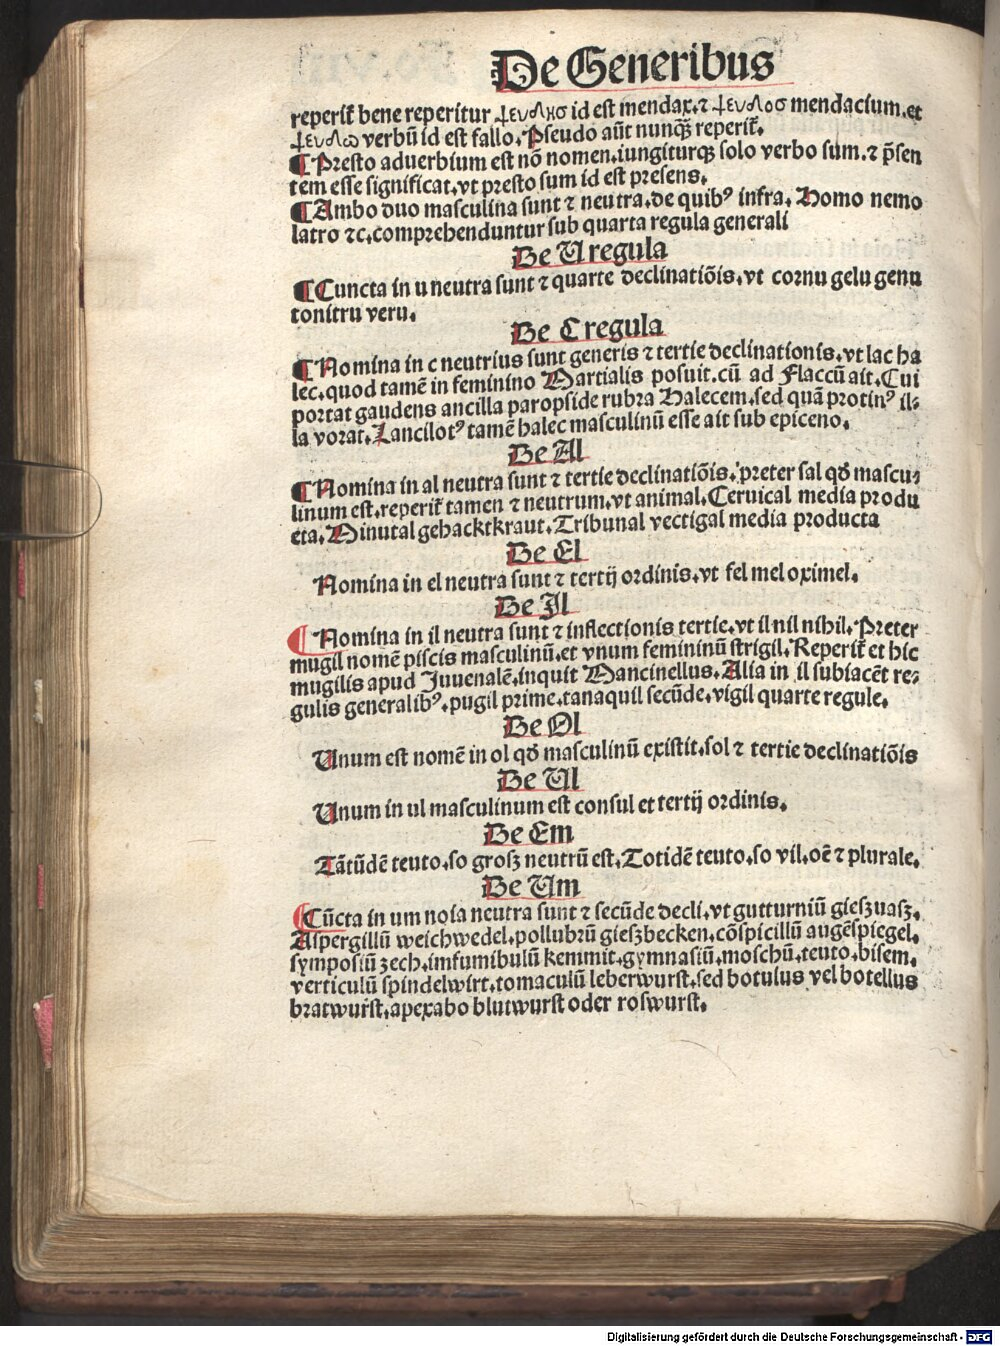 De Generibus
reperit᷑ bene reperitur ψευδησ id est mendax.⁊ ψευδοσ mendacium.et
ψευδω verbū id est fallo. Pseudo aūt nunqꝫ reperit᷑.
¶ Presto aduerbium est nō nomen.iungiturqꝫ solo verbo sum.⁊ p̄sen
tem esse significat.vt presto sum id est presens.
¶ Ambo duo masculina sunt ⁊ neutra.de quibꝰ infra. Homo nemo
latro ⁊c.comprehenduntur sub quarta regula generali
De U regula
¶ Cuncta in u neutra sunt ⁊ quarte declinatiōis.vt cornu gelu genu
tonitru veru.
De C regula
¶ Nomina in c neutrius sunt generis ⁊ tertie declinationis.vt lac ha
lec.quod tamē in feminino Martialis posuit.cū ad Flaccū ait.Cui
portat gaudens ancilla paropside rubra Halecem.sed quā protinꝰ il⸗
la vorat. Lancilotꝰ tamē halec masculinū esse ait sub epiceno.
De Al
¶ Nomina in al neutra sunt ⁊ tertie declinatiōis.preter sal qđ mascu⸗
linum est.reperit᷑ tamen ⁊ neutrum.vt animal.Ceruical media produ
cta. Minutal gehacktkraut. Tribunal vectigal media producta
De El
Nomina in el neutra sunt ⁊ tertij ordinis.vt fel mel oximel.
De Il
¶ Nomina in il neutra sunt ⁊ inflectionis tertie.vt il nil nihil. Preter
mugil nomē piscis masculinū.et vnum femininū strigil. Reperit᷑ et hic
mugilis apud Juuenalē.inquit Mancinellus. Alia in il subiacēt re⸗
gulis generalibꝰ.pugil prime.tanaquil secūde.vigil quarte regule.
De Ol
Unum est nomē in ol qđ masculinū existit.sol ⁊ tertie declinatiōis
De Ul
Unum in ul masculinum est consul et tertij ordinis.
De Em
Tātūdē teuto.so grosz neutrū est. Totidē teuto.so vil.oē ⁊ plurale.
De Um
¶ Cūcta in um noīa neutra sunt ⁊ secūde decli.vt gutturniū gieszuasz.
Aspergillū weichwedel.pollubrū gieszbecken.cōspicillū augēspiegel.
symposiū zech.imfumibulū kemmit.gymnasiū.moschū.teuto.bisem.
verticulū spindelwirt.tomaculū leberwurst.sed botulus vel botellus
bratwurst.apexabo blutwurst oder roswurst.
Digitalisierung gefördert durch die Deutsche Forschungsgemeinschaft - DFG